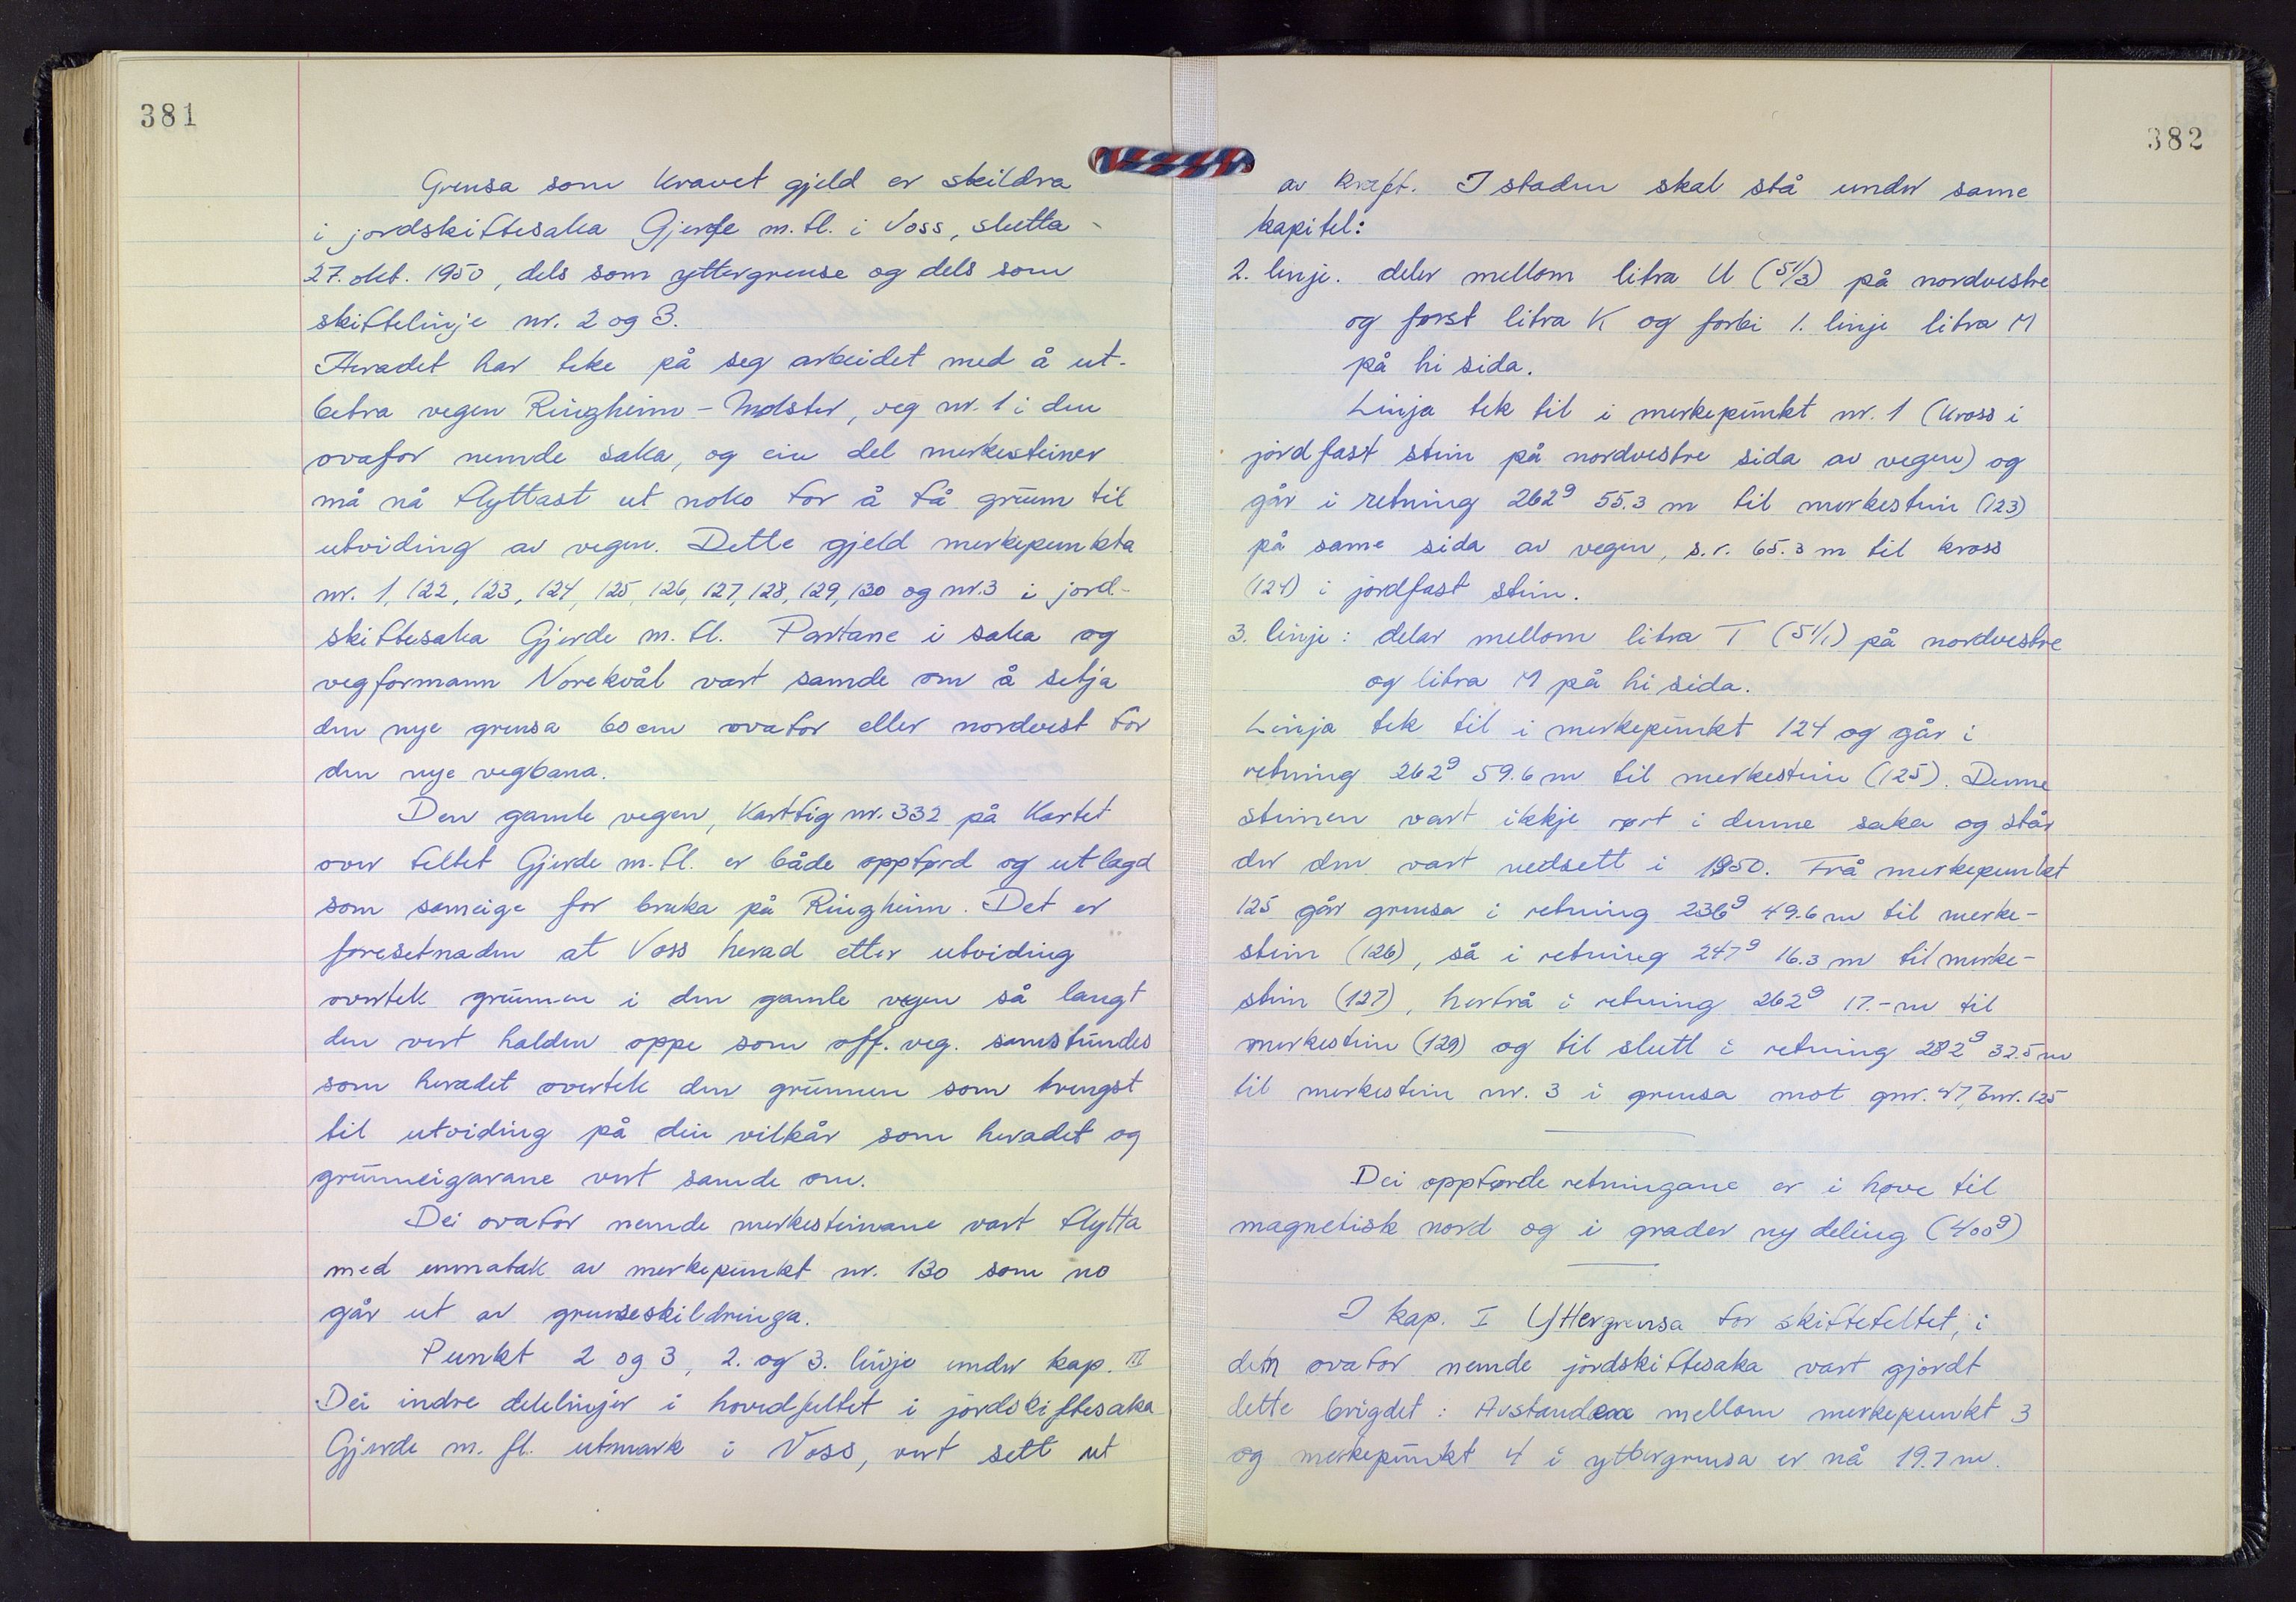 381
Grensa som kravet gjeld er skildra
i jordskiftesaka Gjerde m. fl. i Voss, slutta
27. okt. 1950, dels som yttergrense og dels som
skiftelinje nr. 2 og 3.
Heradet har teke på seg arbeidet med å ut-
betra vegen Ringheim - Molster, veg nr. 1 i den
ovafor nemde saka, og ein del merkesteiner
må nå flyttast ut noko for å få grunn til
utviding av vegen. Dette gjeld merkepunkta
nr. 1, 122, 123, 124, 125, 126, 127, 128, 129, 130 og nr. 3 i jord-
skiftesaka Gjerde m. fl. Partane i saka og
vegformann Norekvål vart samde om å setja
den nye grensa 60 cm ovafor eller nordvest for
den nye vegbana.
Den gamle vegen, kartfig nr. 332 på kartet
over feltet Gjerde m. fl. er både oppførd og utlagd
som sameige for bruka på Ringheim. Det er
foresetnaden at Voss herad etter utviding
overtek grunnen i den gamle vegen så langt
den vert halden oppe som off. veg. samstundes
som heradet overtek den grunnen som trengst
til utviding på dei vilkår som heradet og
grunneigarane vert samde om.
Dei ovafor nemde merkesteinane vart flytta
med unnatak av merkepunkt nr. 130 som no
går ut av grenseskildringa.
Punkt 2 og 3, 2. og 3. linje under kap. III
Dei indre delelinjer i hovedfeltet i jordskiftesaka
Gjerde m. fl. utmark i Voss, vert sett ut
382
av kraft. I staden skal stå under same
kapitel:
2. linje. deler mellom litra U (51/3) på nordvestre
og først litra K og forbi 1. linje litra M
på hi sida.
Linja tek til i merkepunkt nr. 1 (kross i
jordfast stein på nordvestre sida av vegen) og
går i retning 262g 55.3 m til merkestein (123)
på same sida av vegen, s.r. 65.3 m til kross
(124) i jordfast stein.
3. linje: delar mellom litra T (51/1) på nordvestre
og litra M på hi sida.
Linja tek til i merkepunkt 124 og går i
retning 262g 59.6 m til merkestein (125). Denne
steinen vart ikkje rørt i denne saka og står
der den vart nedsett i 1950. Frå merkepunkt
125 går grensa i retning 236g 49.6 m til merke-
stein (126), så i retning 247g 16.3 m til merke-
stein (127), herfrå i retning 262g 17.- m til
merkestein (129) og til slutt i retning 282g 32.5 m
til merkestein nr. 3 i grensa mot gnr. 47, bnr. 125
Dei oppførde retningane er i høve til
magnetisk nord og i grader ny deling (400g)
I kap. I Yttergrensa for skiftefeltet, i
den ovafor nemde jordskiftesaka vart gjordt
dette brigdet: Avstanden mellom merkepunkt 3
og merkepunkt 4 i yttergrensa er nå 19.7 m.